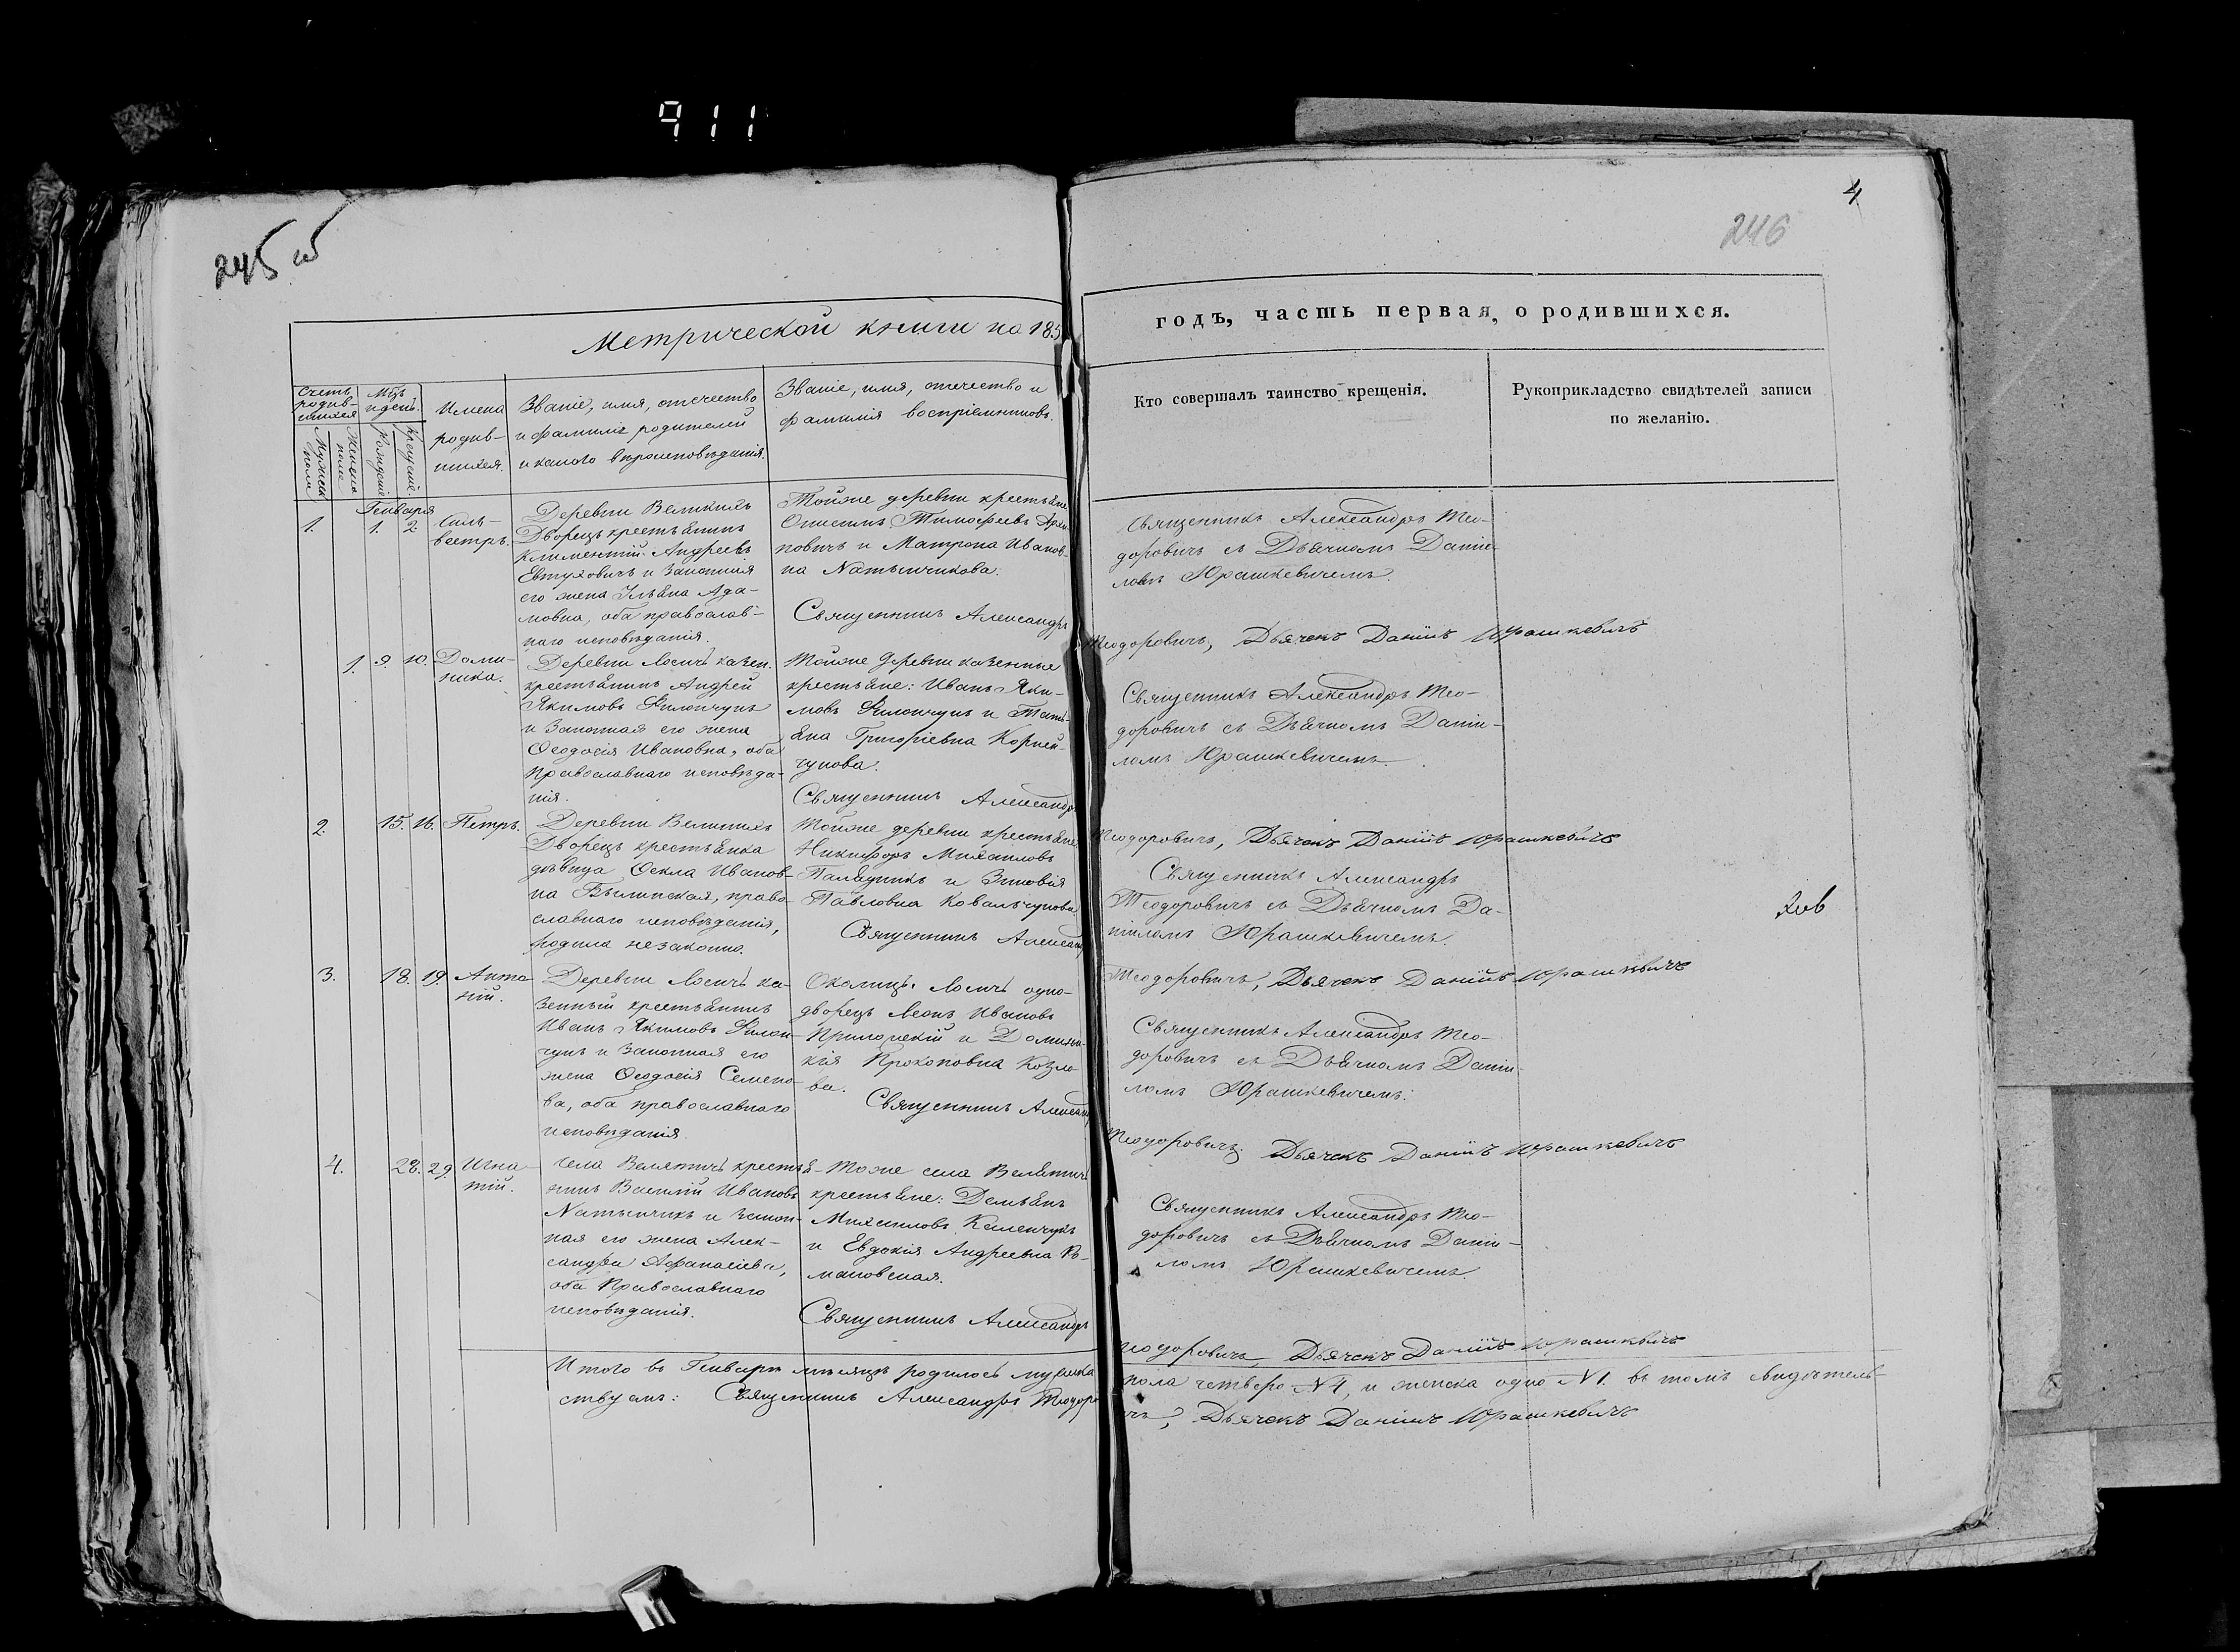 911
245 об
4
246
Метрической книги на 185
годъ, часть первая, о родившихся.
Счетъ родив-шихся
Мѣс. и день.
Имена родив-шихся.
Званіе, имя, отчество и фамилія родителей и какого вѣроисповѣданія.
Званіе, имя, отчество и фамилія воспріемниковъ.
Кто совершалъ таинство крещенія.
Рукоприкладство свидѣтелей записи
по желанію.
Рожденіе
Крещеніе.
Генваря
1. 1. 2. Силь-
вестръ.
Деревни Великихъ
Дворецъ крестьянинъ
Климентій Андреевъ
Евтуховичъ и законная
его жена Ульяна Ада-
мовна, оба православ-
наго исповѣданія.
Тойже деревни крестьяне
Онисимъ Тимофеевъ
и Матрона Иванов-
на Натынчикова.
Священникъ Александръ
Священникъ Александръ Тео-
доровичъ съ Дьячкомъ Даніи-
ломъ Юрашкевичемъ.
Теодоровичъ, Дьячекъ Даніилъ Юрашкевичъ
1. 9. 10. Доми-
ника.
Деревни Лосичъ казен.
крестьянинъ Андрей
Якимовъ Филончукъ
и законная его жена
Ѳеодосія Ивановна, оба
Православнаго исповѣда-
нія.
Тойже деревни казенные
крестьяне: Иванъ Яки-
мовъ Филончукъ и Тать-
яна Григоріевна Корней-
чукова.
Священникъ Александръ
Священникъ Александръ Тео-
доровичъ съ Дьячкомъ Даніи-
ломъ Юрашкевичемъ.
Теодоровичъ, Дьячекъ Даніилъ Юрашкевичъ
2. 15. 16. Петръ.
Деревни Великихъ
Дворецъ крестьянка
дѣвица Ѳекла Иванов-
на православнаго исповѣданія,
родила незаконно.
Тойже деревни крестьяне
Никифоръ Михаиловъ
и Зиновія
Павловна Ковальчукова.
Священникъ Александръ
Священникъ Александръ
Теодоровичъ съ Дьячкомъ Да-
ніиломъ Юрашкевичемъ.
Теодоровичъ, Дьячекъ Даніилъ Юрашкевичъ
3. 18. 19. Анто-
ній.
Деревни Лосичъ ка-
зенный крестьянинъ
Иванъ Якимовъ Филон-
чукъ и законная его
жена Ѳеодосія Семено-
ва, оба православнаго
исповѣданія.
Околицы Лосичъ одно-
дворецъ Леонъ Ивановъ
и Домини-
кія Прокоповна Козло-
ва.
Священникъ Александръ
Священникъ Александръ Тео-
доровичъ съ Дьячкомъ Даніи-
ломъ Юрашкевичемъ.
Теодоровичъ, Дьячекъ Даніилъ Юрашкевичъ
4. 28. 29. Игна-
тій.
Села Велятичъ крестья-
нинъ Василій Ивановъ
Натынчикъ и закон-
ная его жена Алек-
сандра Афанасіева,
оба Православнаго
исповѣданія.
Тоже села Велятичъ
крестьяне: Демьянъ
Михаиловъ Каленчукъ
и Евдокія Андреевна
Священникъ Александръ
Священникъ Александръ Тео-
доровичъ съ Дьячкомъ Даніи-
ломъ Юрашкевичемъ.
Теодоровичъ, Дьячекъ Даніилъ Юрашкевичъ
Итого въ Генварѣ мѣсяцѣ родилось мужеска пола четверо №4, и женска одно №1. въ томъ свидѣтель-
ствуемъ: Священникъ Александръ Теодоровичъ, Дьячекъ Даніилъ Юрашкевичъ